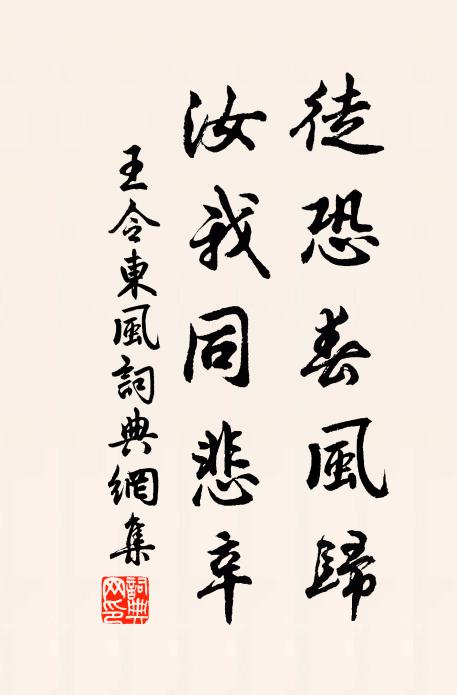 徒恐春風歸
汝我同悲辛
王令東風詞典網集
詞典網印